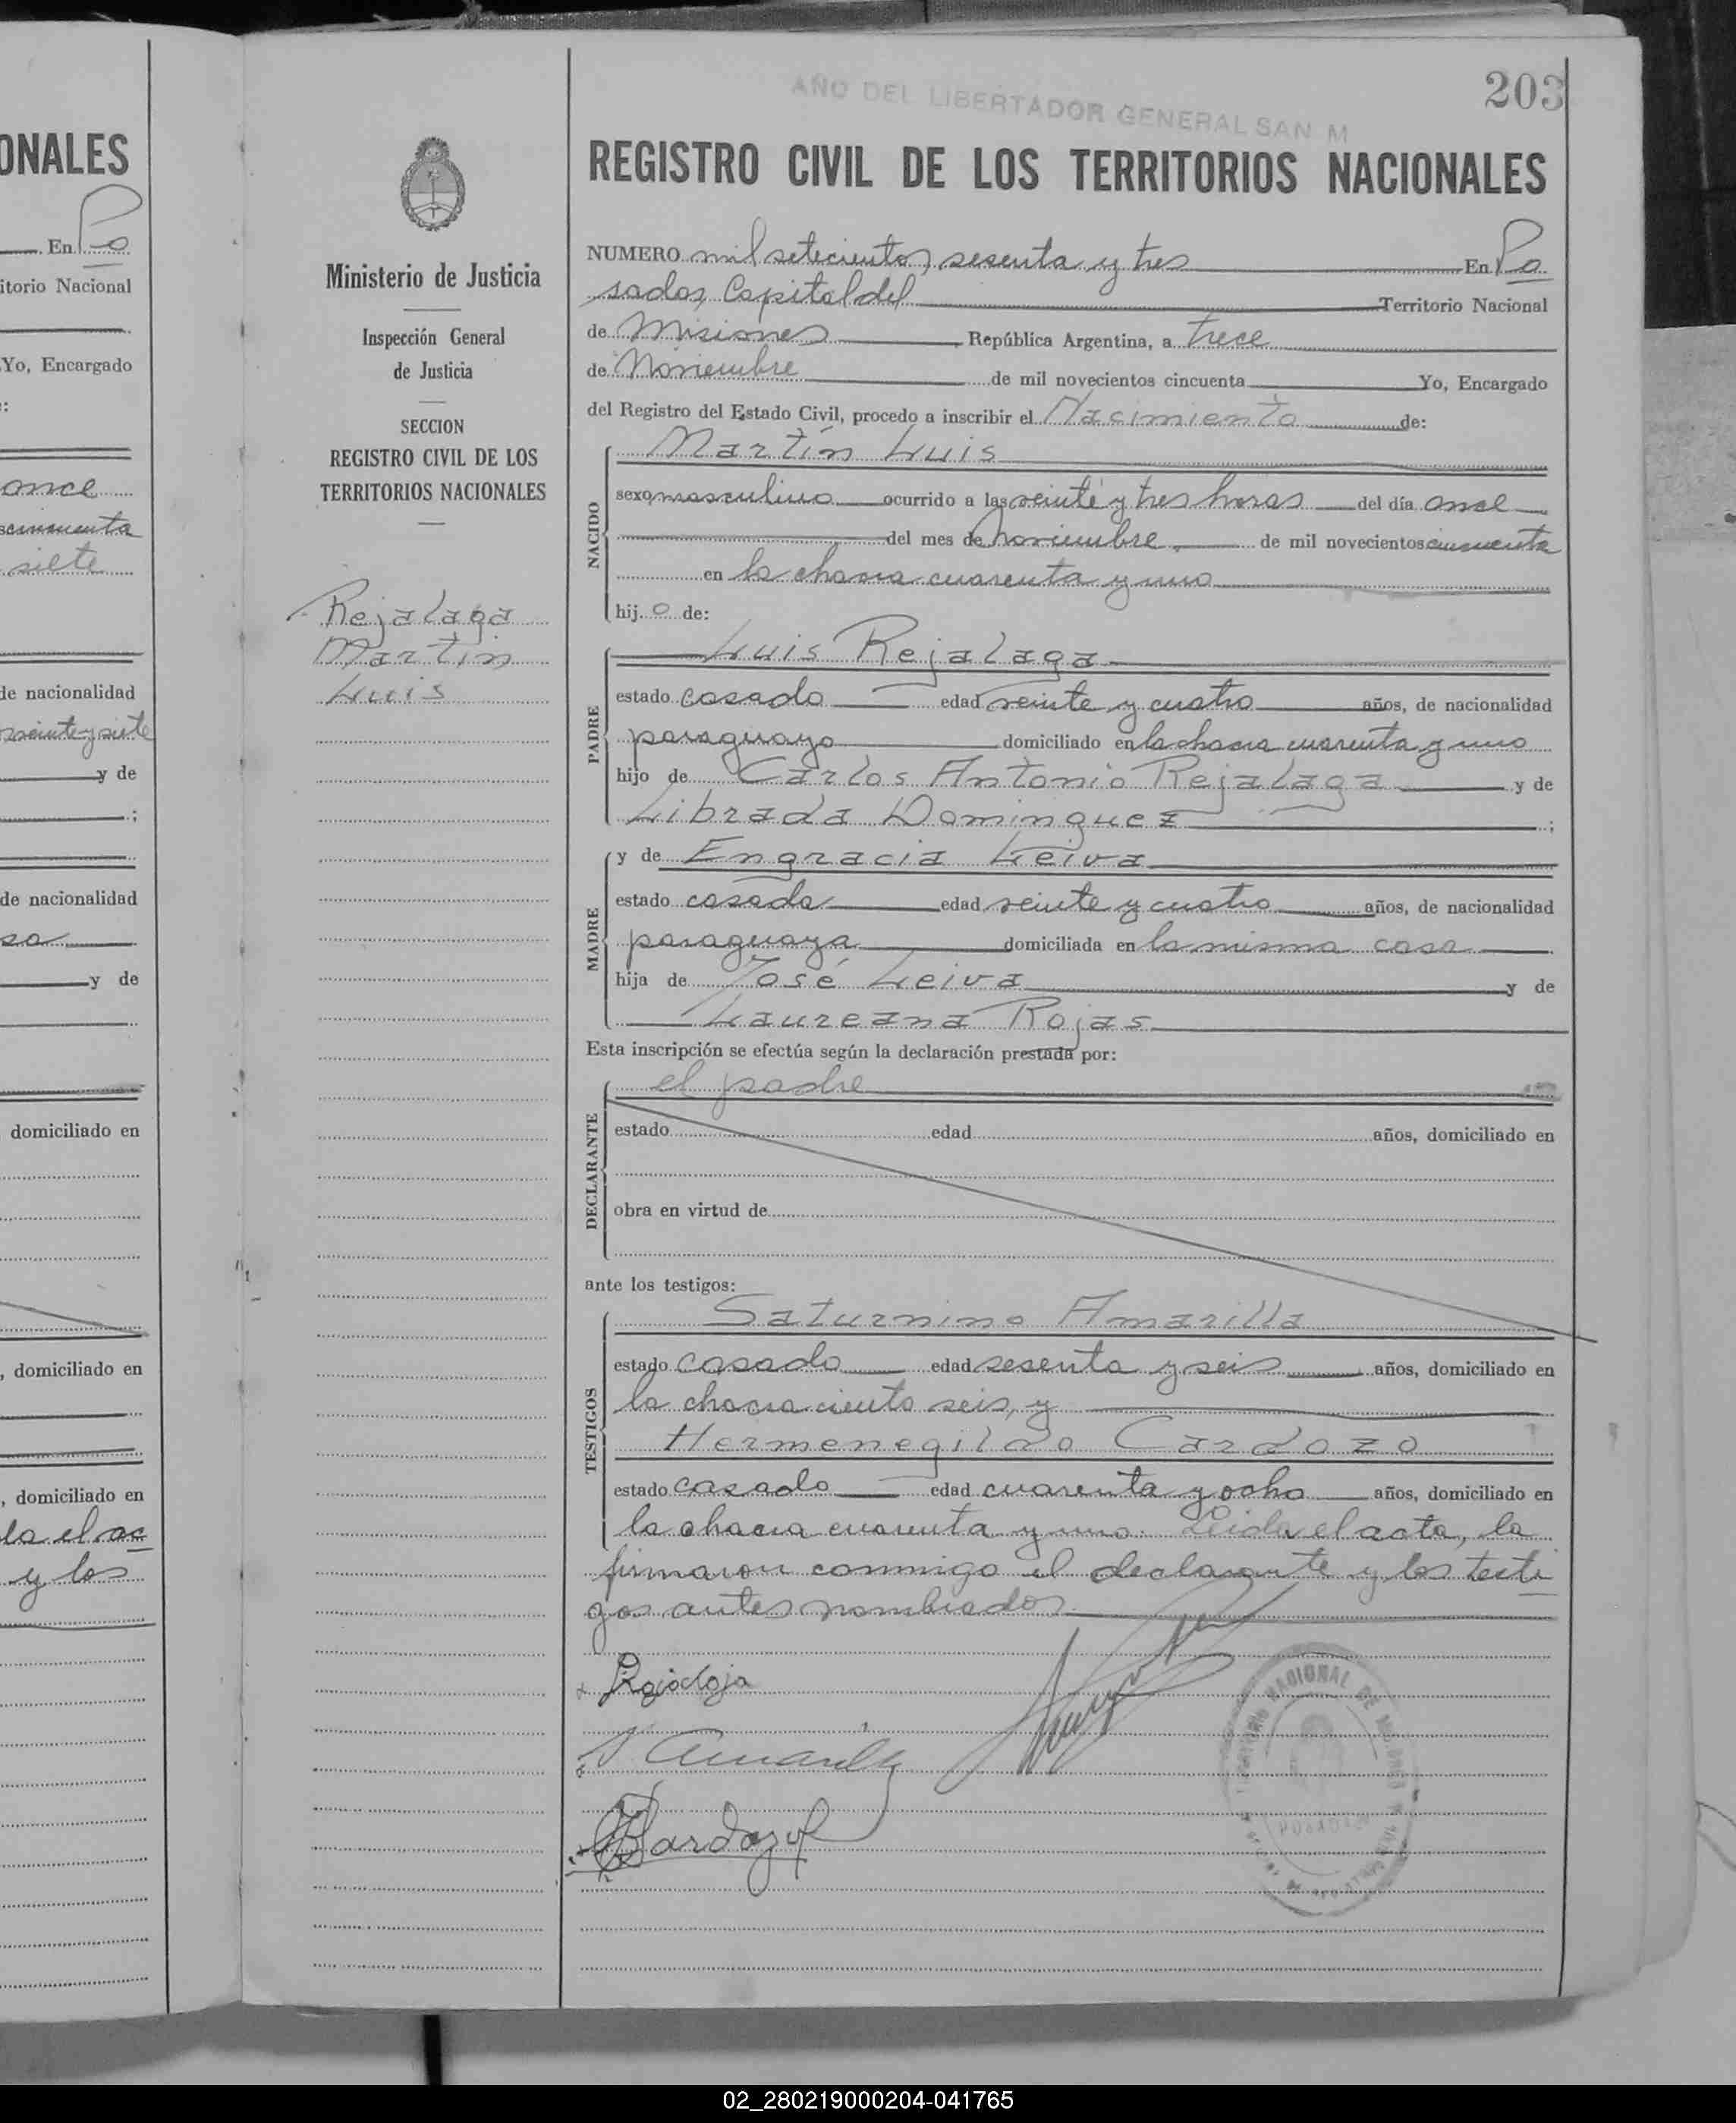 203
AÑO DEL LIBERTADOR GENERAL SAN M
REGISTRO CIVIL DE LOS TERRITORIOS NACIONALES
Ministerio de Justicia
Inspección General
de Justicia
SECCION
REGISTRO CIVIL DE LOS
TERRITORIOS NACIONALES
Rejalaga
Martin
Luis
NUMERO mil setecientos sesenta y tres En Po
sadas, Capital del Territorio Nacional
de Misiones República Argentina, a trece
de Noviembre de mil novecientos cincuenta Yo, Encargado
del Registro del Estado Civil, procedo a inscribir el Nacimiento de:
NACIDO
Martín Luis
sexo masculino ocurrido a las veinte y tres horas del día once
del mes de Noviembre de mil novecientos cincuenta
en la chacra cuarenta y uno
hij o de:
PADRE
Luis Rejalaga
estado casado edad veinte y cuatro años, de nacionalidad
paraguayo domiciliado en la chacra cuarenta y uno
hijo de Carlos Antonio Rejalaga y de
Librada Dominguez ;
MADRE
y de Engracia Leiva
estado casada edad veinte y cuatro años, de nacionalidad
paraguaya domiciliada en la misma casa
hija de José Leiva y de
Laureana Rojas
Esta inscripción se efectúa según la declaración prestada por:
DECLARANTE
el padre
estado edad años, domiciliado en
obra en virtud de
ante los testigos:
TESTIGOS
Saturnino Amarilla
estado casado edad sesenta y seis años, domiciliado en
la chacra ciento seis, y
Hermenegildo Cardozo
estado casado edad cuarenta y ocho años, domiciliado en
la chacra cuarenta y uno. Leida el acta, la
firmaron conmigo el declarante y los testi
gos antes nombrados
S Amarilla
Cardozo
NACIONAL DE MISIONES
POSADAS
ONALES
En Po
itorio Nacional
Yo, Encargado
:
once
cincuenta
siete
de nacionalidad
veinte y siete
y de
;
de nacionalidad
sa
y de
domiciliado en
, domiciliado en
, domiciliado en
da el ac
y los
02_280219000204-041765